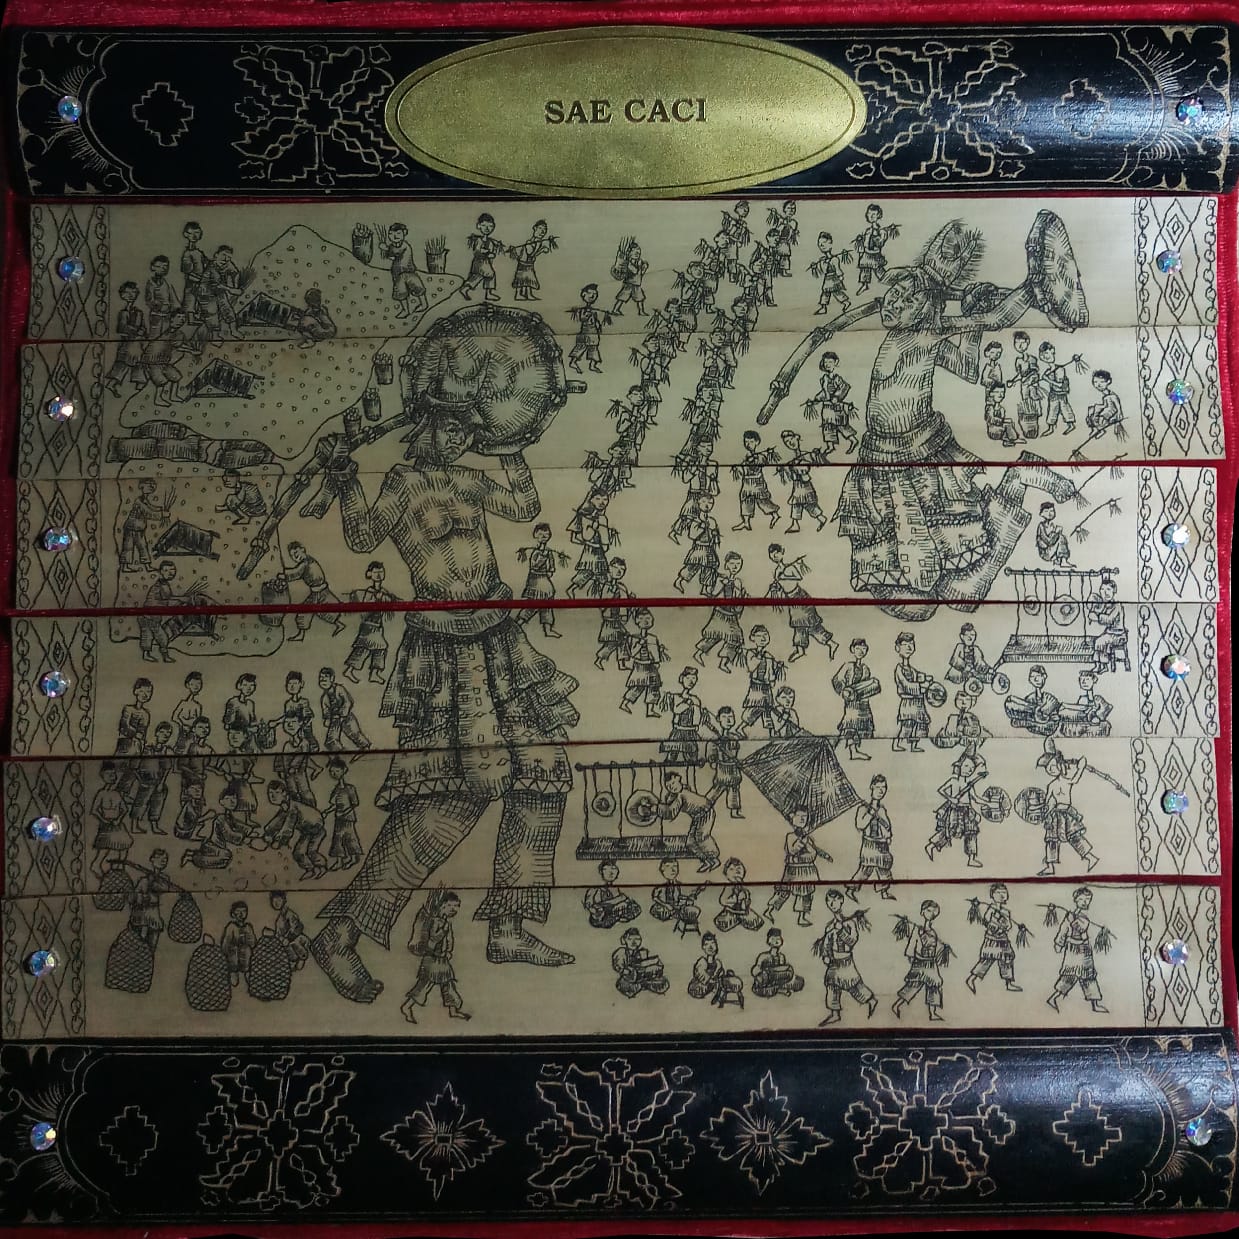 SAE CACI